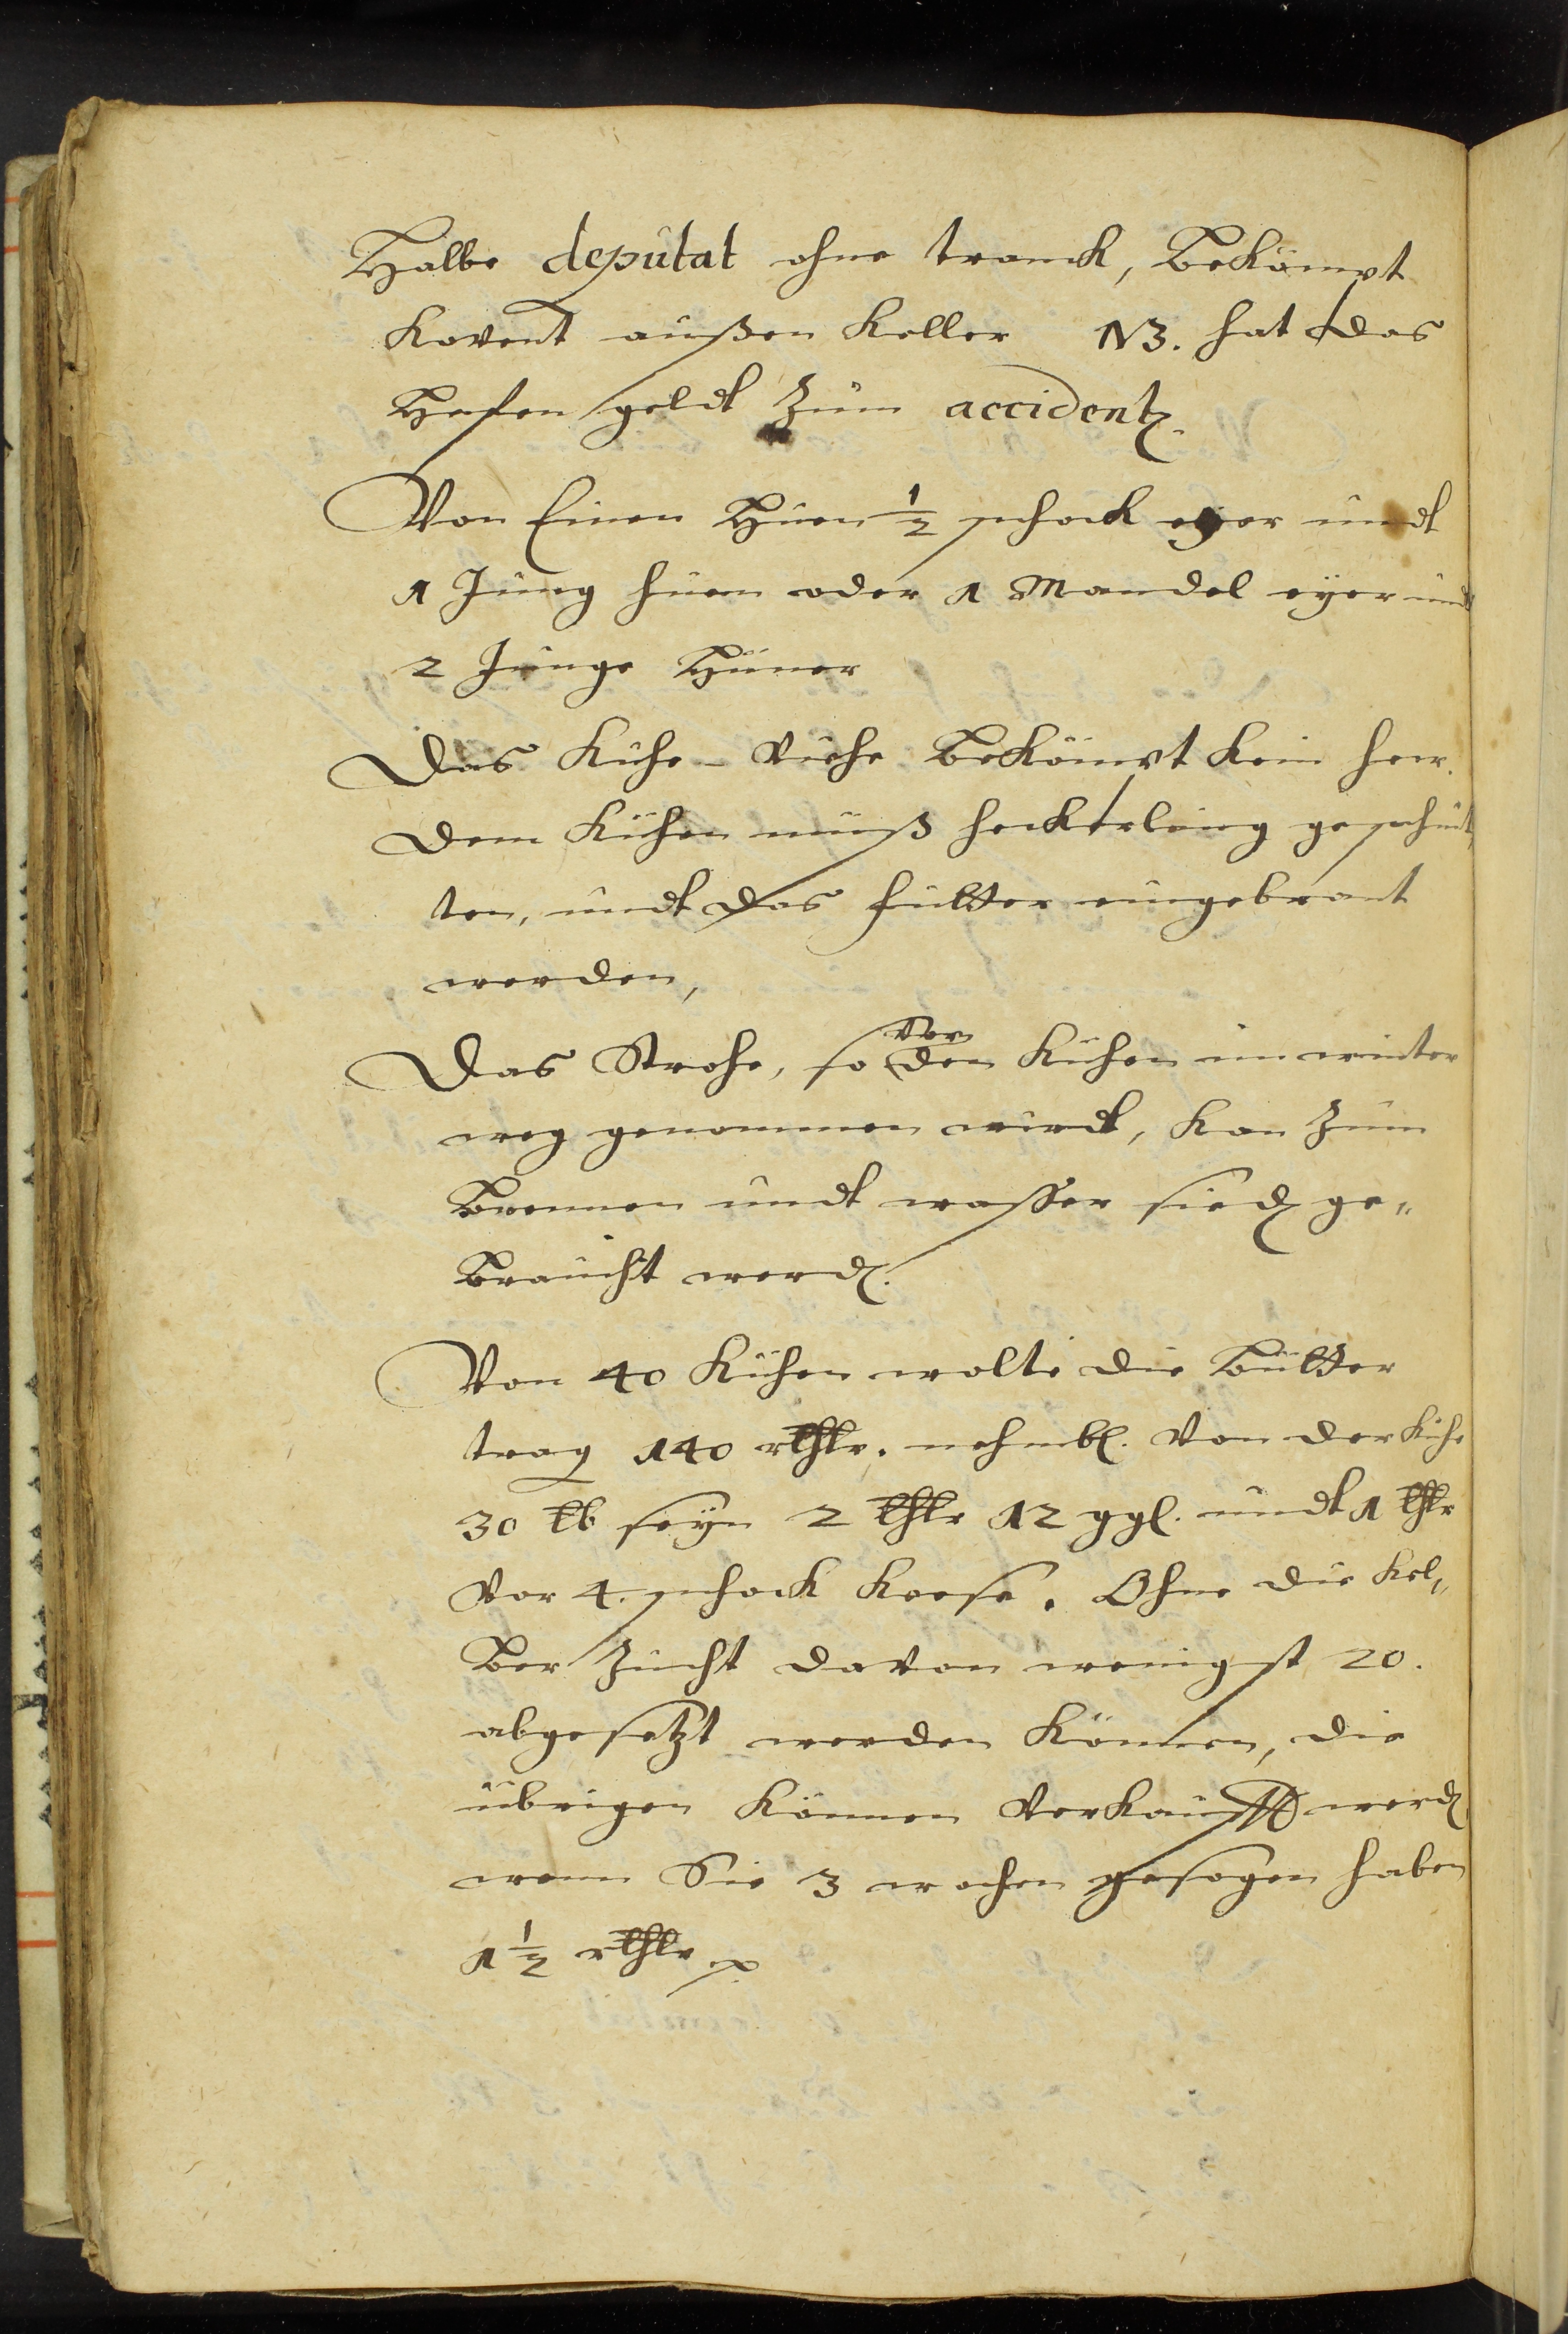 Halbe deputat ohne tranck, Bekömpt
Kovent außen Keller NB. hat das
Hefen geldt zum accidentz.
Von Einen Huen ½ schock eyer undt
1 Jung huen oder 1 Mandel eyer und
2 Junge Hüner
Das Kühe-Viehe Bekömpt kein hew.
dem Kühen muß heckerling geschnit,
ten, undt das futter eingebrant
werden,
Das Strohe, so vor den Kühen im winter
weg genommen wirdt, kan zum
Brennen undt wasser sieden ge„
Braucht werden.
Von 40 Kühen wolte die Butter
trag 140 rthlr. nehmbl. Von der Kühe
30 lb seyn 2 thlr 12 ggl. undt 1 thlr
Vor 4. schock Keese. Ohne die Kel„
Ber Zucht davon wenigst 20.
abgesetzt werden können, die
übrigen können Verkaufft werden
wenn Sie 3 wochen gesogen haben
1 ½ rthlr p